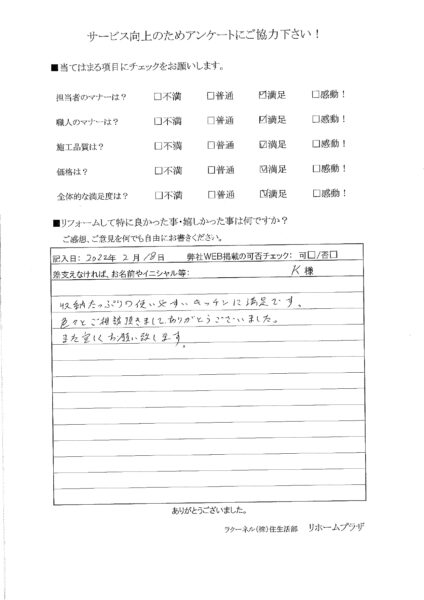 サービス向上のためアンケートにご協力下さい！
■当てはまる項目にチェックをお願いします。
担当者のマナーは？ □不満 □普通 ☑満足 □感動！
職人のマナーは？ □不満 □普通 ☑満足 □感動！
施工品質は？ □不満 □普通 ☑満足 □感動！
価格は？ □不満 □普通 ☑満足 □感動！
全体的な満足度は？ □不満 □普通 ☑満足 □感動！
■リフォームして特に良かった事・嬉しかった事は何ですか？
ご感想、ご意見を何でも自由にお書きください。
記入日：2022年 2月 18日 弊社WEB掲載の可否チェック： 可□/否□
差支えなければ、お名前やイニシャル等： K 様
収納たっぷりの使いやすいキッチンに満足です。
色々とご相談頂きましてありがとうございました。
また宜しくお願い致します。
ありがとうございました。
ラクーネル（株）住生活部 リホームプラザ